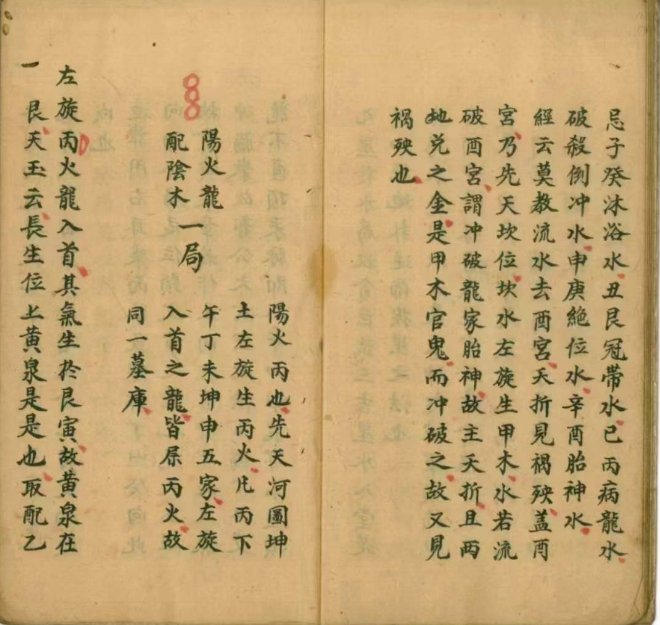 忌子癸沐浴水丑艮冠帶水巳丙病龍水
破殺倒冲水申庚絶位水辛酉胎神水
經云莫教流水去酉宮夭折見禍殃蓋酉
宮乃先天坎位坎水左旋生甲木水若流
破酉宮謂冲破龍家胎神故主夭折且酉
地兌之金是甲木官鬼而冲破之故又見
禍殃也
陽火龍
配陰木
一局
陽火丙也先天河圖坤
土左旋生丙火凡丙下
午丁未坤申五家左旋
入首之龍皆屬丙火故
同一墓庫
左旋丙火龍入首其氣生於艮寅故黃泉在
一艮天玉云長生位上黃泉是是也取配乙